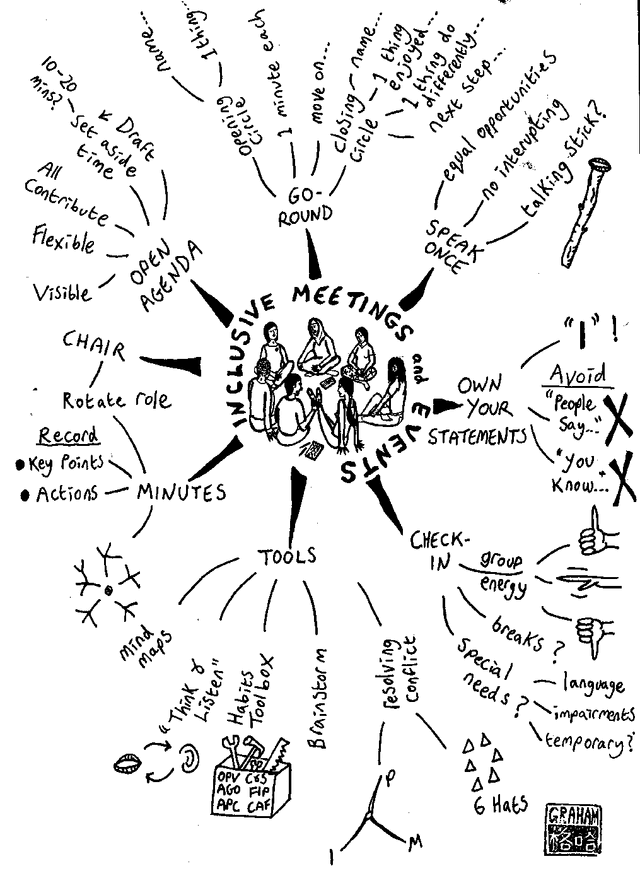 INCLUSIVE MEETINGS and EVENTS
OPEN
AGENDA
Draft
Set aside
time
10-20
mins?
All
Contribute
Flexible
Visible
GO-
ROUND
Opening
Circle
name...
1 thing...
1 minute each
move on...
closing
Circle
name...
1 thing
enjoyed...
1 thing do
differently...
next step...
SPEAK
ONCE
equal opportunities
no interupting
talking stick?
OWN
YOUR
STATEMENTS
"I"!
Avoid
"People
Say..."
"you
Know..."
CHECK-
IN
group
energy
breaks?
Special
needs?
language
impairments
temporary?
TOOLS
resolving
conflict
P
I
M
6 Hats
Brainstorm
Habits
Toolbox
OPV C&S
AGO FIP
APC CAF
"Think &
Listen"
mind
maps
MINUTES
Record
Key Points
Actions
Rotate role
CHAIR
GRAHAM
格哈